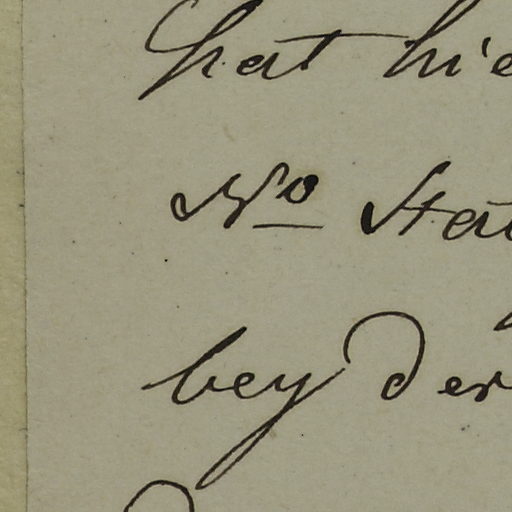 hat hie
No Stat
bey der